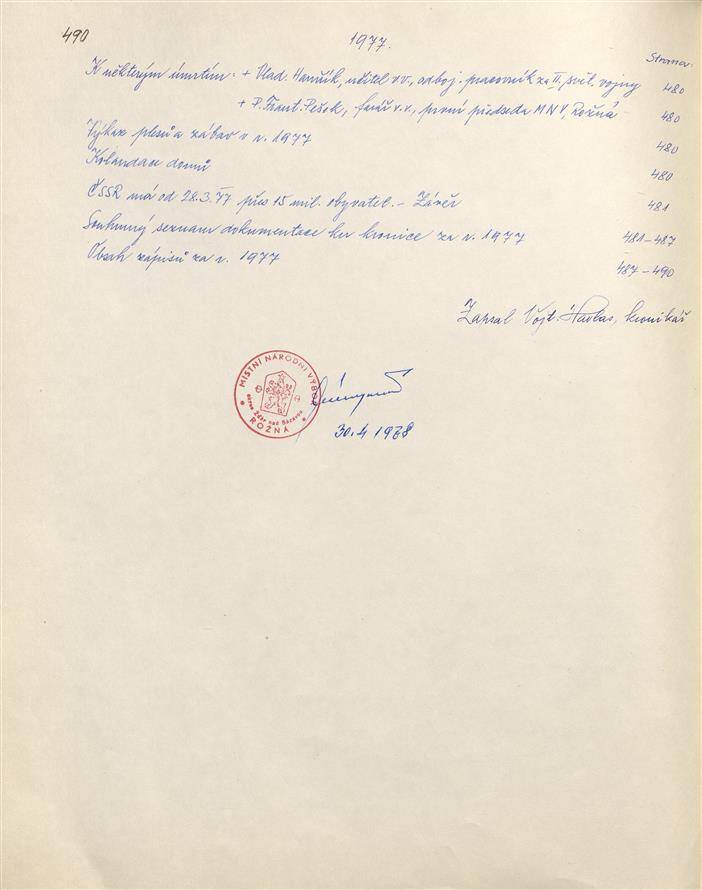 490
1977.
Strana:
K některým úmrtím: + Vlad. učitel v.v., odboj. pracovník za II. svět. vojny 480
+ P. Frant. Pešek, farář v.v., první předseda MNV, Rožná 480
Výkaz plesů a zábav v r. 1977 480
Kolaudace domů 480
ČSSR má od 28.3.77 přes 15 mil. obyvatel. – Závěr 481
Souhrnný seznam dokumentace ku kronice za r. 1977 481–487
Obsah zápisů za r. 1977 487–490
Zapsal Vojt. Havlas, kronikář
MÍSTNÍ NÁRODNÍ VÝBOR
okres Žďár nad Sázavou
ROŽNÁ
30.4 1978